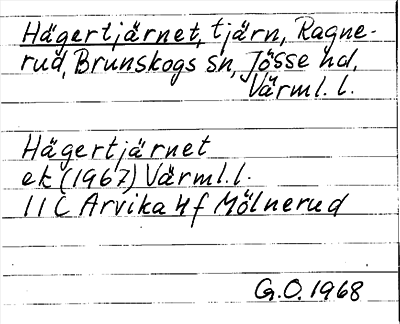 Hägertjärnet, tjärn, Ragne-
rud, Brunskogs sn, Jösse hd,
Värml. l.
Hägertjärnet
ek (1967) Värml. l.
11 C Arvika 4 f Mölnerud
G.O. 1968